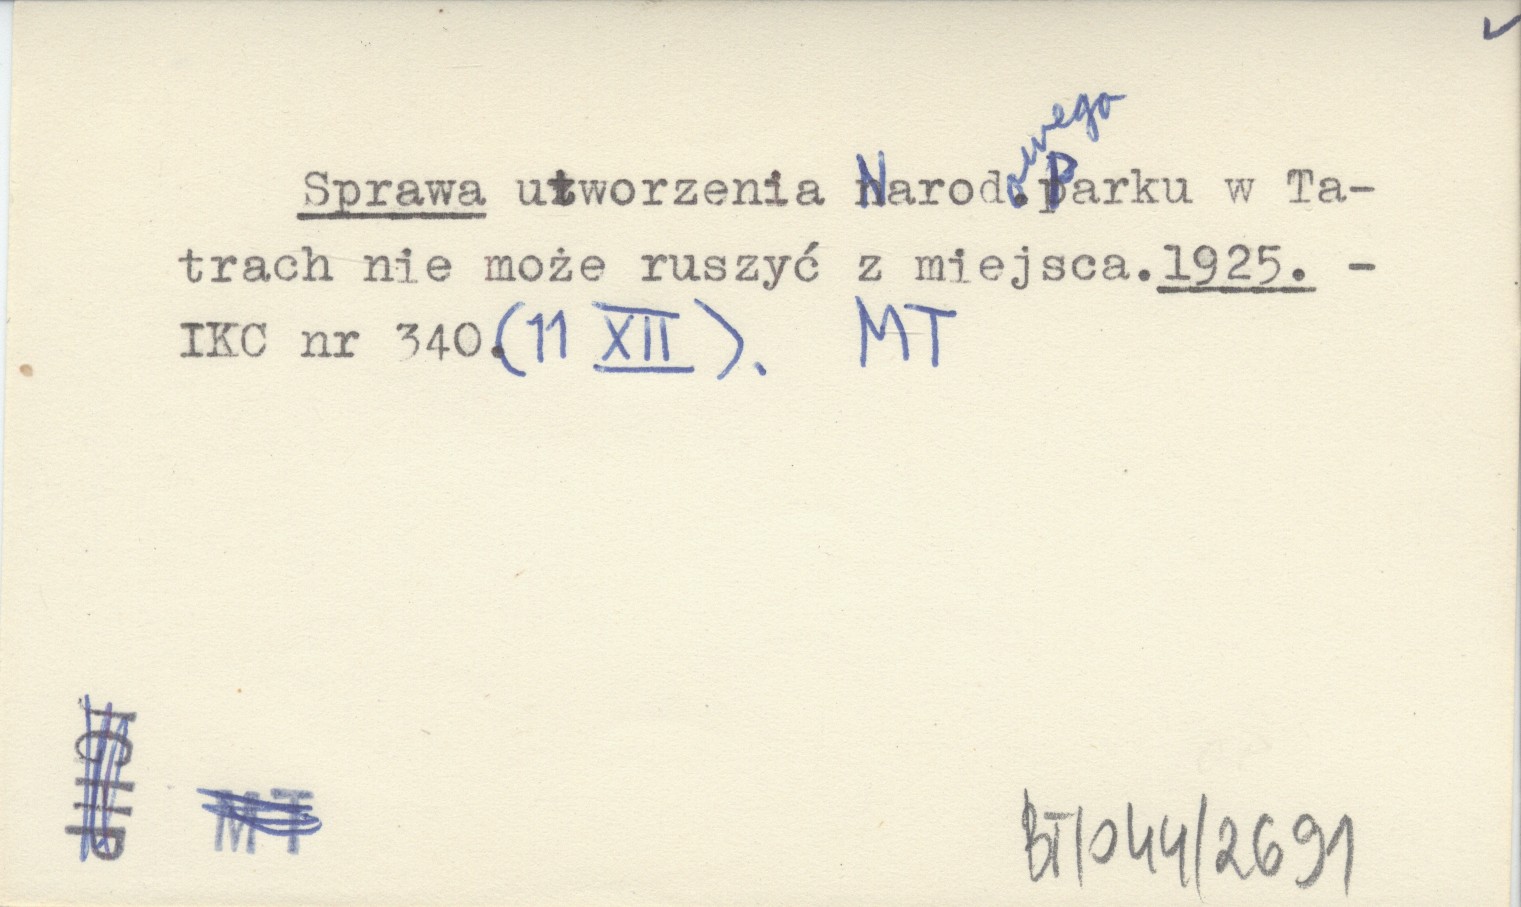 Sprawa utworzenia Narodowego Parku w Ta-
trach nie może ruszyć z miejsca. 1925. -
IKC nr 340 (11 XII). MT
MT
BT/044/2691